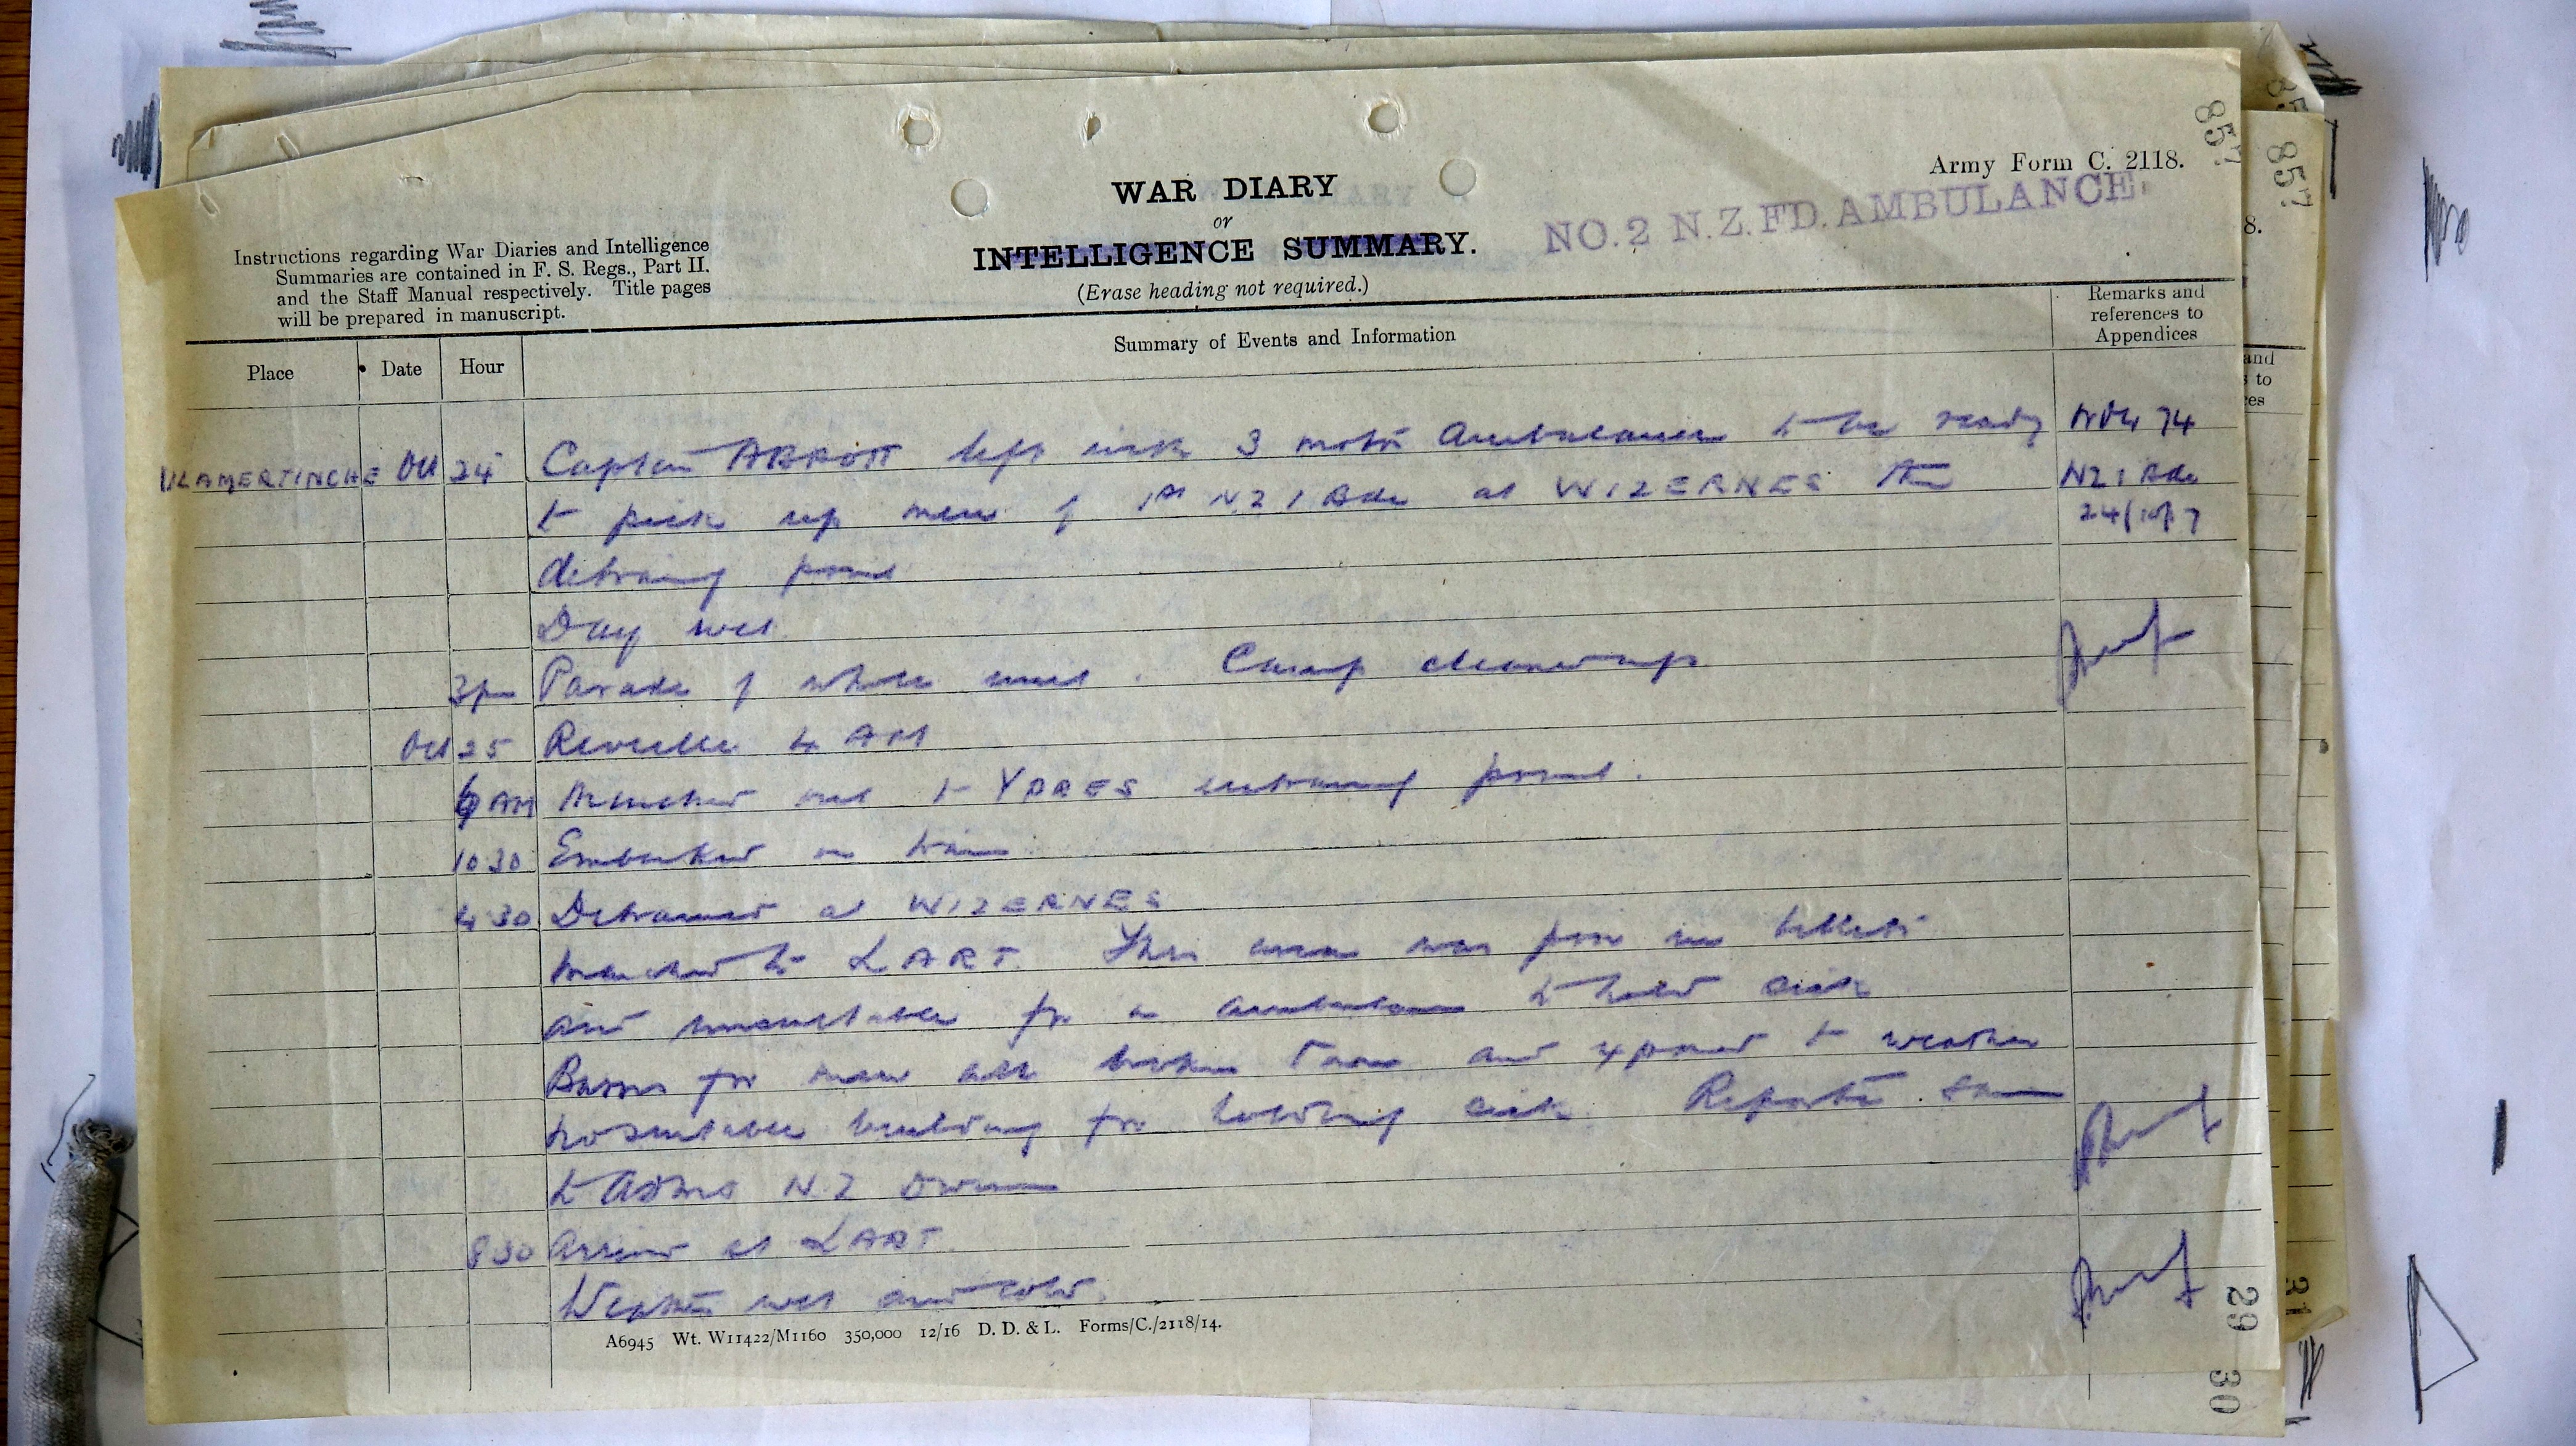 857
857
Army Form C. 2118.
WAR DIARY
or
INTELLIGENCE SUMMARY.
(Erase heading not required.)
NO. 2 N.Z. FD. AMBULANCE.
8.
Instructions regarding War Diaries and Intelligence
Summaries are contained in F. S. Regs., Part II.
and the Staff Manual respectively. Title pages
will be prepared in manuscript.
Place Date Hour Summary of Events and Information Remarks and
references to
Appendices
and
s to
ces
VLAMERTINCHE Oct 24 Captain ABBOTT left with 3 motor Ambulances to be ready 74
to pick up men of 1st N.Z I Bde at WIZERNES the NZ I Bde
24/10/17
detraining point
Day wet.
3pm Parade of whole unit. Camp cleaned up
Oct 25 Reveille 4 AM
6 AM Marched out to YPRES entraining point.
10 30 Embarked on train
4 30 Detrained at WIZERNES
Marched to LART. This area was poor in billets
and unsuitable for an ambulance to hold sick
Barns for men all broken down and exposed to weather
No suitable building for holding sick Reported same
to ADMS N.Z Division
8 30 Arrived at LART
Weather wet and cold.
A6945 Wt. W11422/M1160 350,000 12/16 D. D. & L. Forms/C./2118/14.
29
30
31